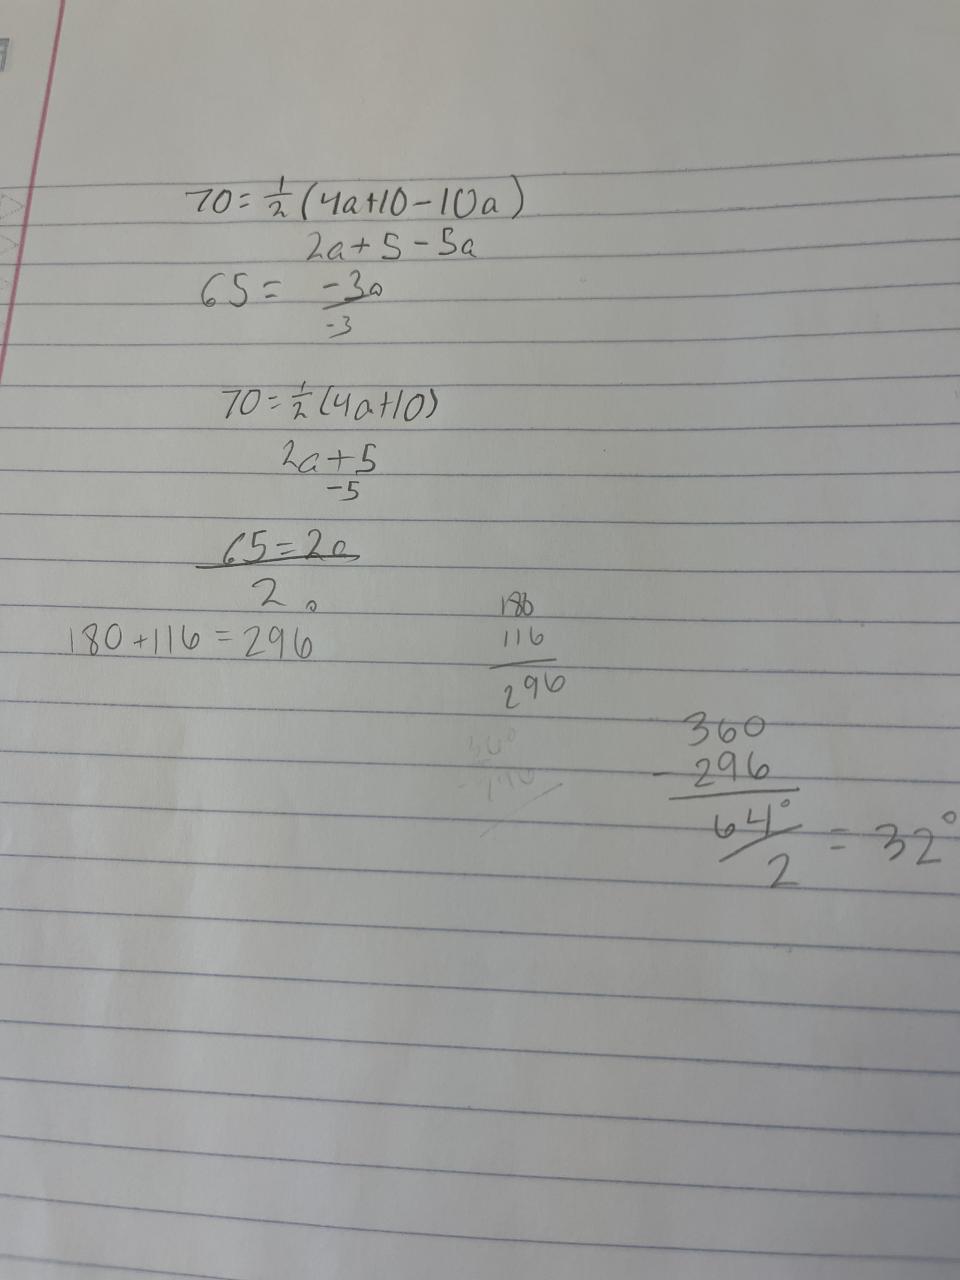 70 = 1/2 (4a+10-10a)
2a+5-5a
65 = -3a
-3
70 = 1/2 (4a+10)
2a+5
-5
65 = 2a
2
180+116 = 296
180
116
296
360
- 296
64°
2 = 32°